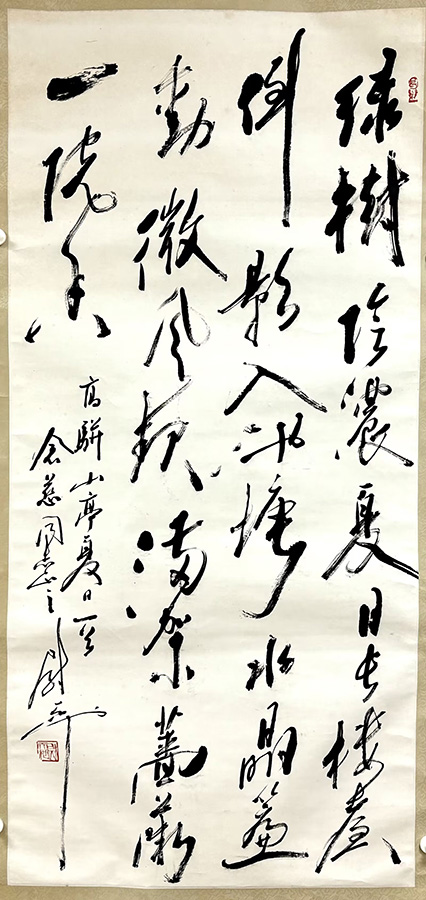 綠樹陰濃夏日长樓臺
倒影入池塘水晶簾
動微風起滿架薔薇
一院香
高駢山亭夏日一首
念慈同志